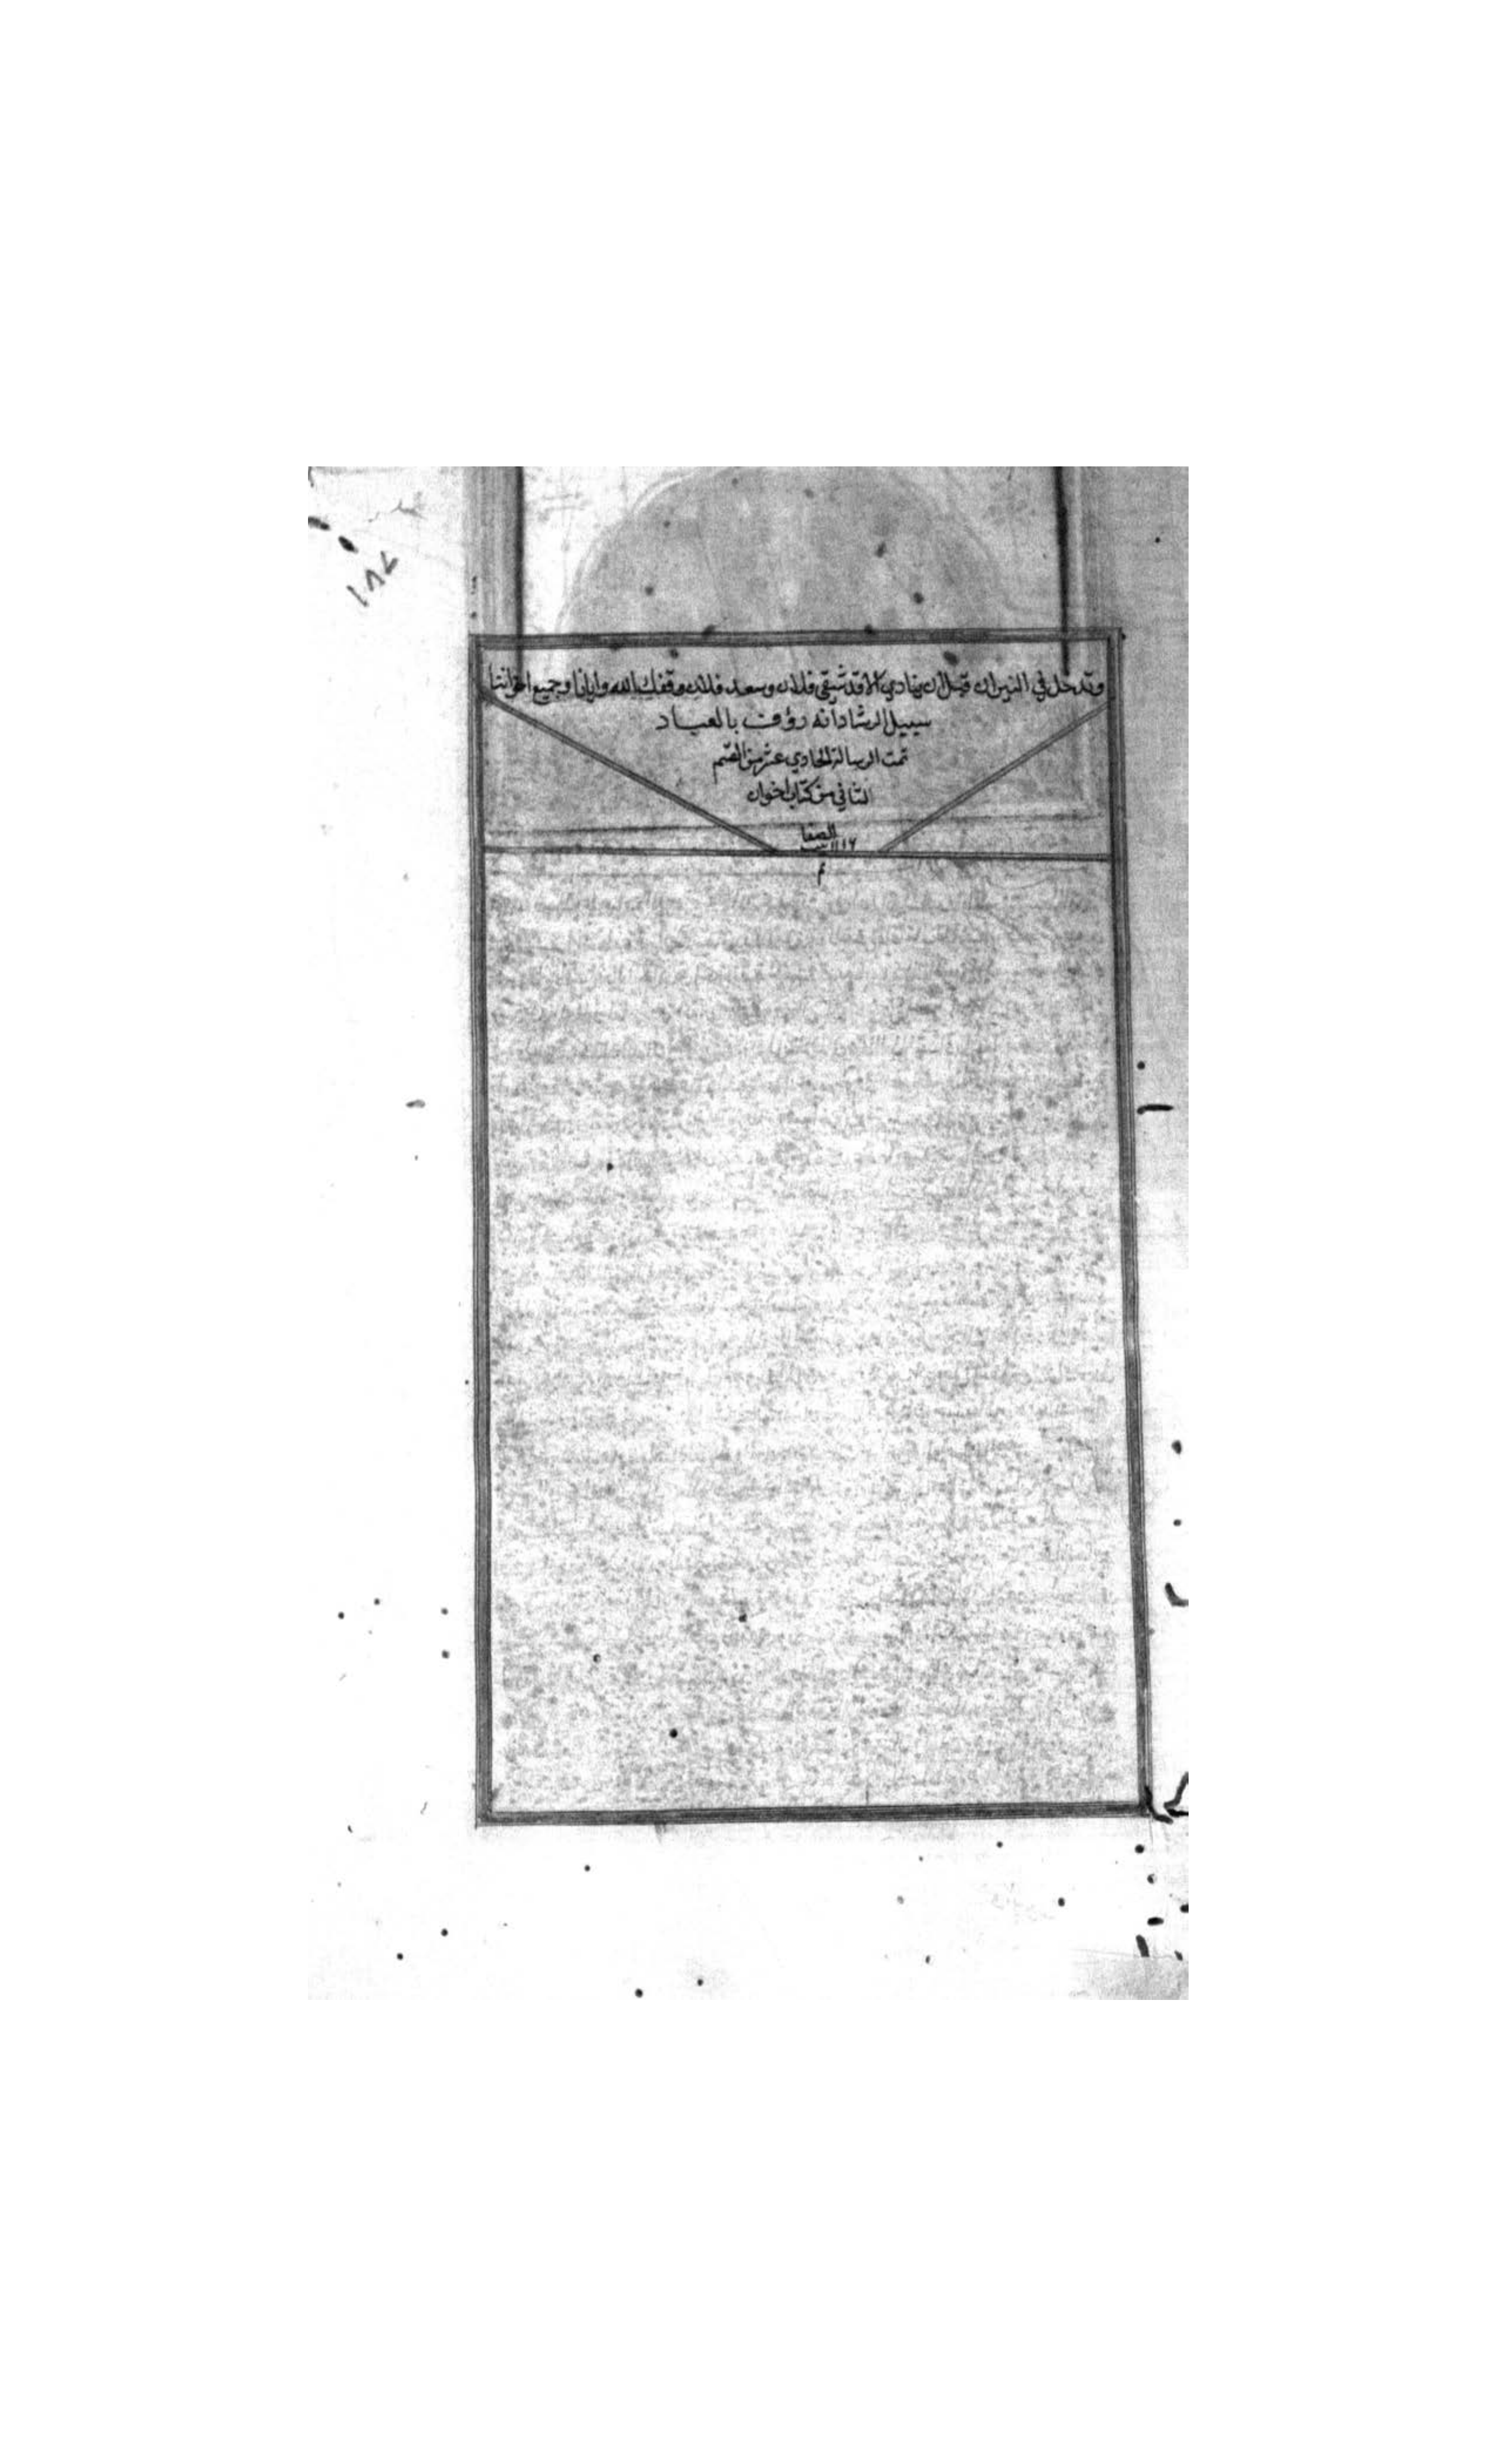 وتدخل في النيران قبل أن ينادي الا وقد شقي فلان وسعد فلان وفقك الله وايانا وجميع اخواننا
سبيل الرشاد انه رؤف بالعباد
تمت الرسالة الحادي عشر من القسم
الثاني من كتاب اخوان
الصفا
م
١٨٧